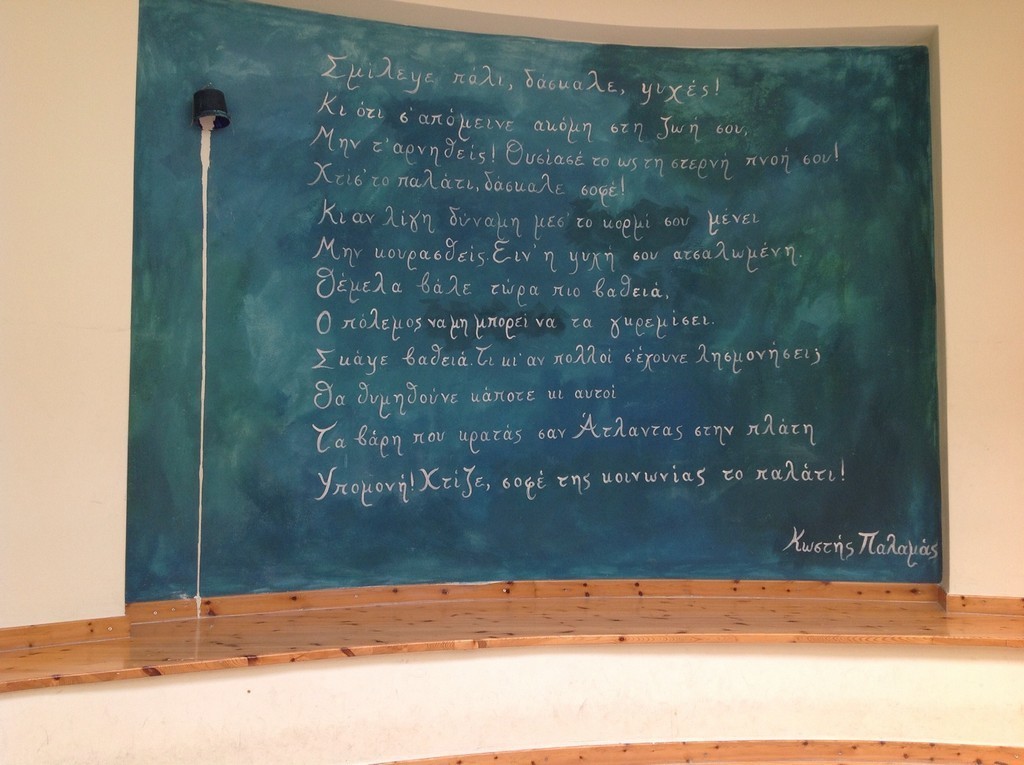 Σμίλεψε πάλι, δάσκαλε, ψυχές!
Κι ότι σ'απόμεινε ακόμη στη ζωή σου,
Μην τ'αρνηθείς! Θυσίασέ το ως τη στερνή πνοή σου!
Χτίσ'το παλάτι, δάσκαλε σοφέ!
Κι αν λίγη δύναμη μεσ'το κορμί σου μένει
Μην κουρασθείς. Ειν'η ψυχή σου ατσαλωμένη.
Θέμελα βάλε τώρα πιο βαθειά,
Ο πόλεμος να μη μπορεί να τα γκρεμίσει.
Σκάψε βαθειά. Τι κι'αν πολλοί σ'έχουνε λησμονήσει;
Θα θυμηθούνε κάποτε κι αυτοί
Τα βάρη που κρατάς σαν Άτλαντας στην πλάτη
Υπομονή! Χτίζε, σοφέ της κοινωνίας το παλάτι!
Κωστής Παλαμάς